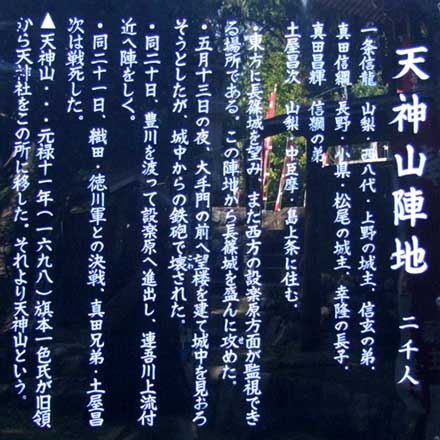 天神山陣地 二千人
一条信龍 山梨・西八代・上野の城主、信玄の弟、
真田信綱 長野・小県・松尾の城主、幸隆の長子、
真田昌輝 信綱の弟
土屋昌次 山梨・中巨摩・島上条に住む。
・東方に長篠城を望み、また西方の設楽原方面が監視でき
る場所である。この陣地から長篠城を盛んに攻めた。
せ
・五月十三日の夜、大手門の前へ望楼を建て城中を見おろ
そうとしたが、城中からの鉄砲で壊された。
こわ
・同二十日、豊川を渡って設楽原へ進出し、連吾川上流付
近へ陣をしく。
・同二十一日、織田・徳川軍との決戦、真田兄弟・土屋昌
次は戦死した。
▲天神山・・・元禄十一年(一六九八)旗本一色氏が旧領
から天神社をこの所に移した。それより天神山という。